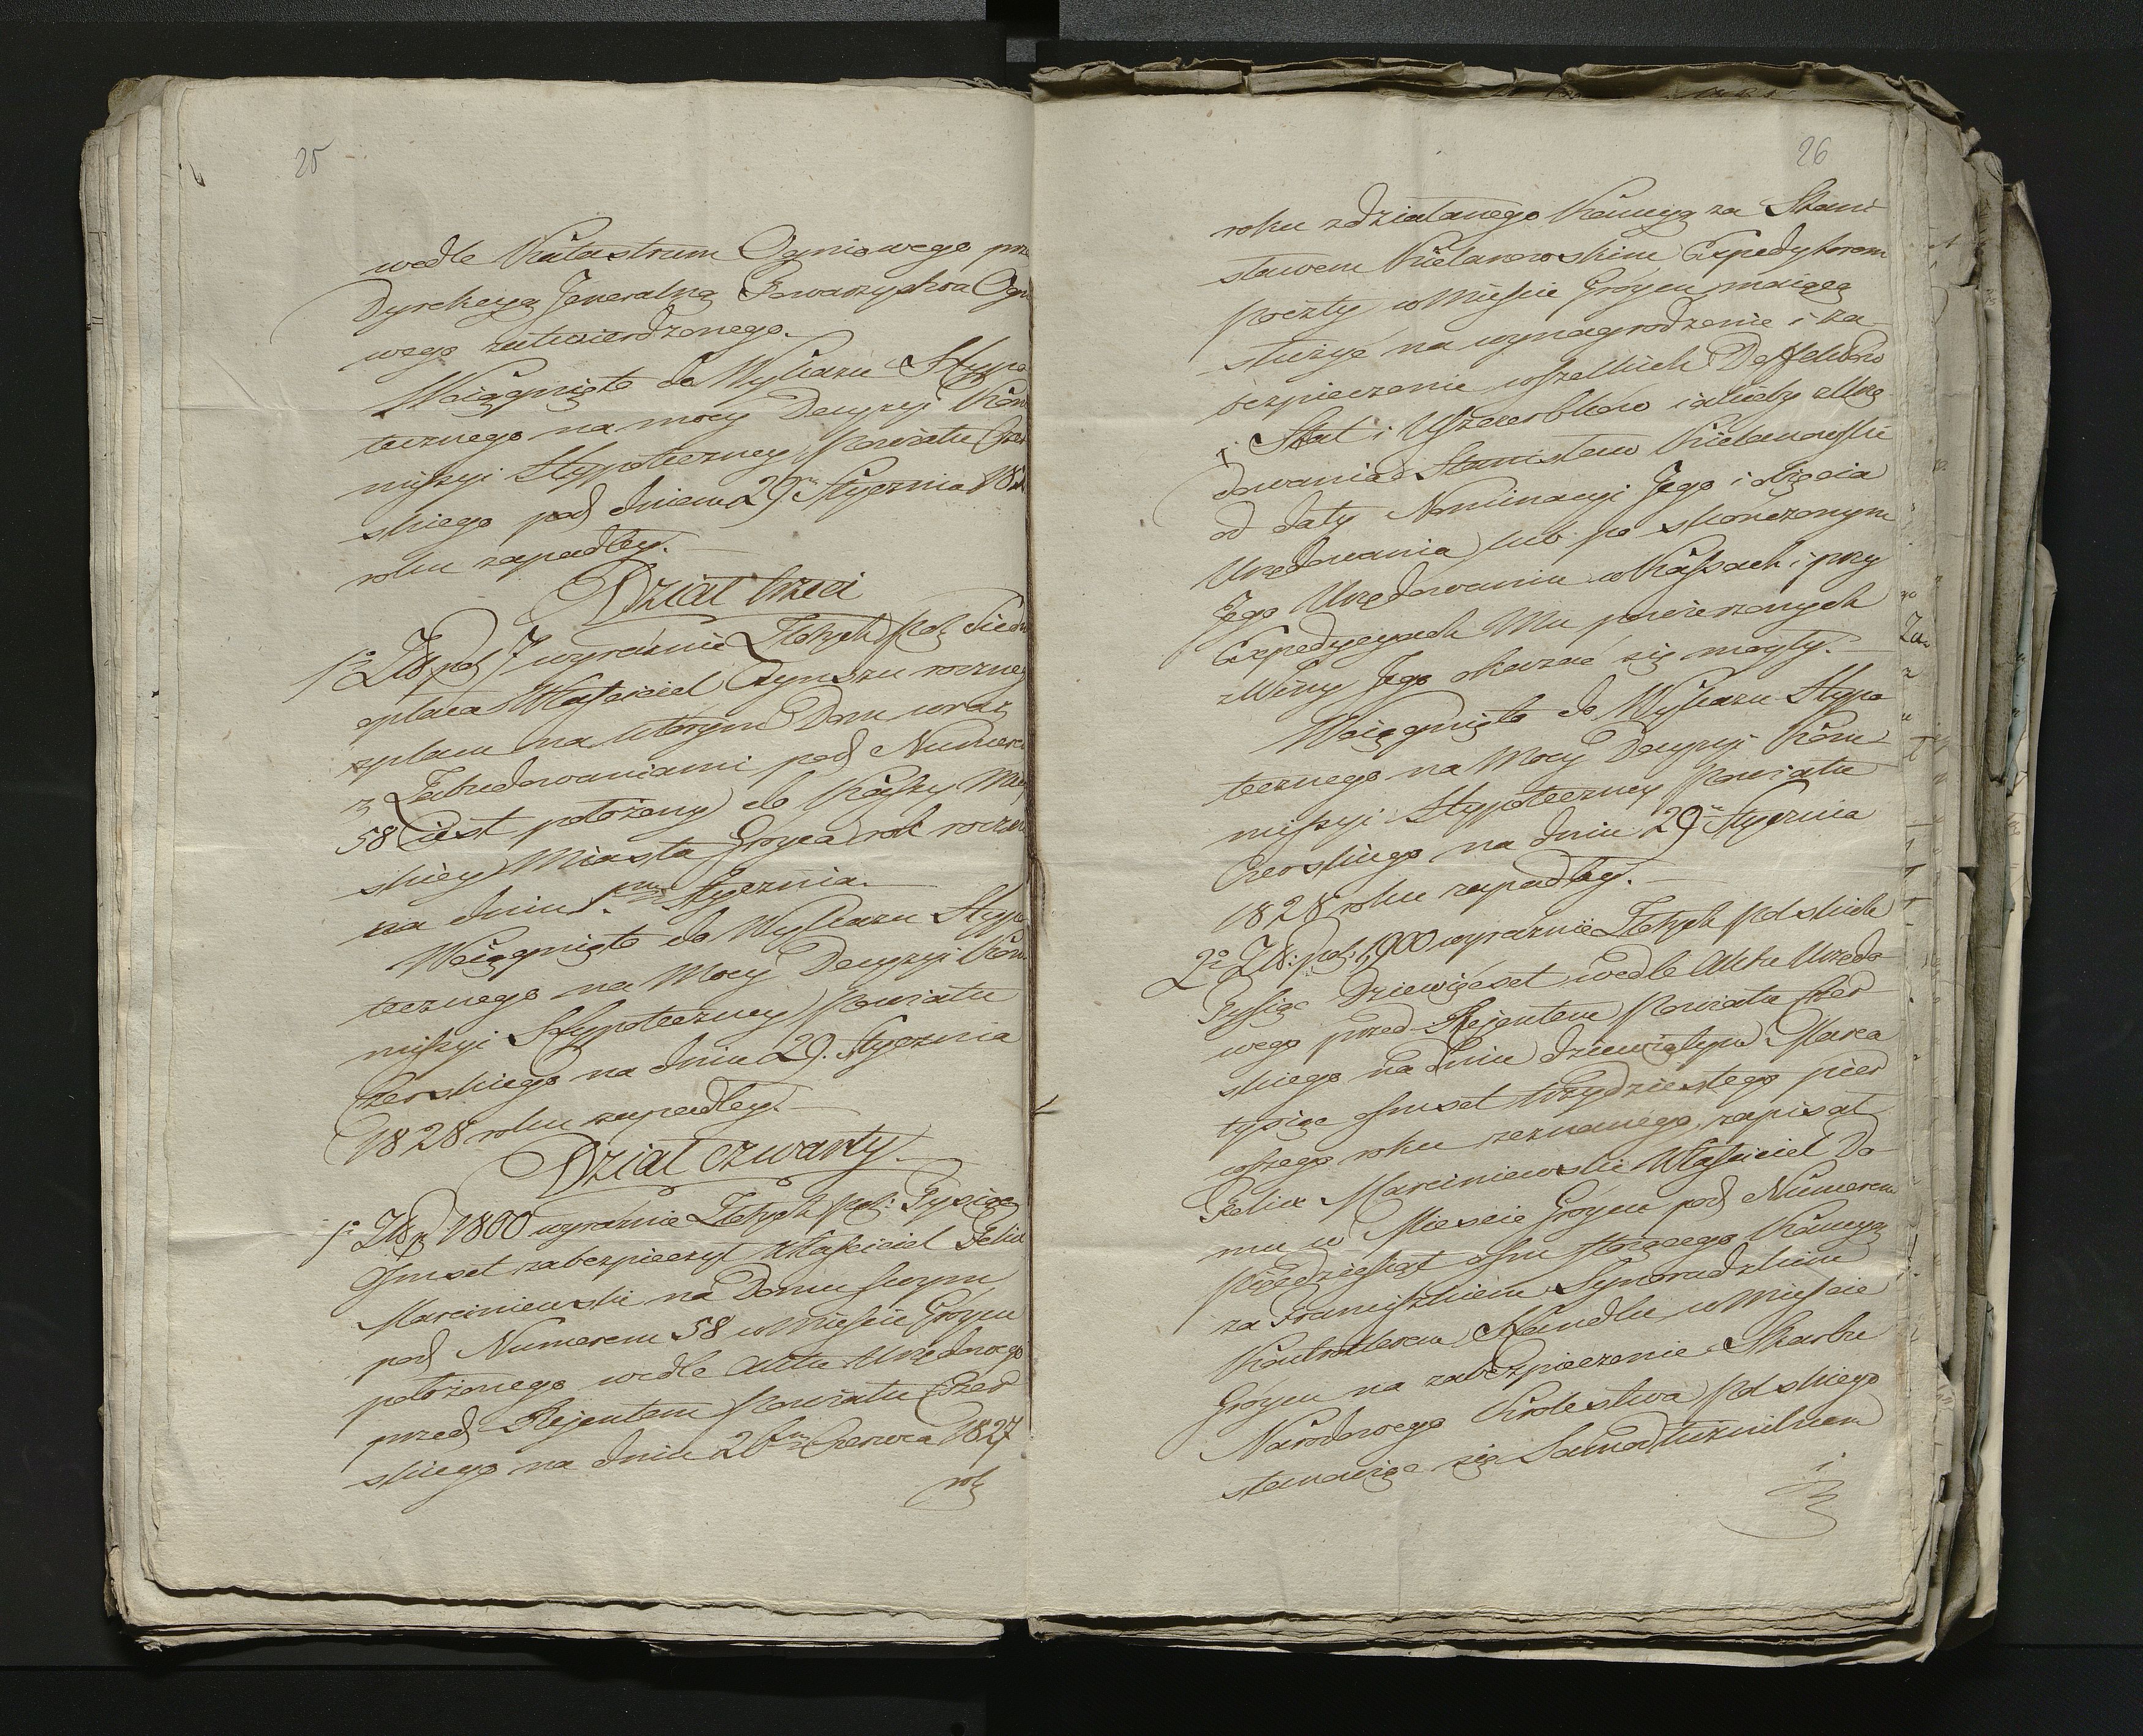 25
wedle Katastrum Ogniowego prze
Dyrekcyą Jeneralną Towarzystwa Ogni
wego zatwierdzonego.
Wciągnięto do Wykazu Hypo
tecznego na mocy Decyzyi Kom
missyi Hypoteczney Powiatu Czer
skiego pod dniem 29 Stycznia 1828
roku zapadłey.
Dział trzeci
1o Złp. 7 wyraźnie Złotych Pol. Siedm
opłaca Właściciel Czynszu roczneg
z placu na którym Dom wraz
z Zabudowaniami pod Numerem
58 iest położony do Kassy Miey
skiey Miasta Groyca rok rocznie
na dniu 1. Stycznia.
Wciągnięto do Wykazu Hypo
tecznego na Mocy Decyzyi Kom
missyi Hypoteczney Powiatu
Czerskiego na dniu 29. Stycznia
1828 roku zapadłey.
Dział czwarty.
1o Złp 1800 wyraźnie Złotych Pol: Tysiąc
Ośmset zabezpieczył Właściciel Felix
Marciniewski na Domu swym
pod Numerem 58 w Mieście Groycu
położonego wedle Aktu Urzędowego
przed Rejentem Powiatu Czer
skiego na dniu 26 Czerwca 1827
rok
26
roku zdziałanego Kaucyą za Stani
sławem Kielanowskim Expedytorem
Poczty w Mieście Groycu maiącą
służyć na wynagrodzenie i za
bezpieczenie wszelkich Defektów
Strat i Uszczerbków iakieby z Urzę
dowania Stanisław Kielanowski
od daty Nominacyi Jego i obięcia
Urzędowania lub po skończonym
Jego Urzędowaniu w Kassach i przy
Expedycyach Mu powierzonych
z Winy Jego okazać się mogły.
Wciągnięto do Wykazu Hypo
tecznego na Mocy Decyzyi Kom
missyi Hypoteczney Powiatu
Czerskiego na dniu 29 Stycznia
1828 roku zapadłey.
2o Złt: Pol: 1,900 wyraźnie Złotych Polskich
Tysiąc Dziewięćset wedle Aktu Urzędo
wego przed Rejentem Powiatu Czer
skiego na dniu dziewiątym Marca
tysiąc ośmset trzydziestego pier
wszego roku zeznanego, zapisał
Felix Marciniewski Właściciel Do
mu w Mieście Groycu pod Numerem
Pięćdziesiąt ośm stoiącego Kaucyą
za Franciszkiem Synoradzkim
Kontrollerem Handlu w Mieście
Groycu na zabezpieczenie Skarbu
Narodowego Królestwa Polskiego
stanawiąc się Samodłużnikiem
i